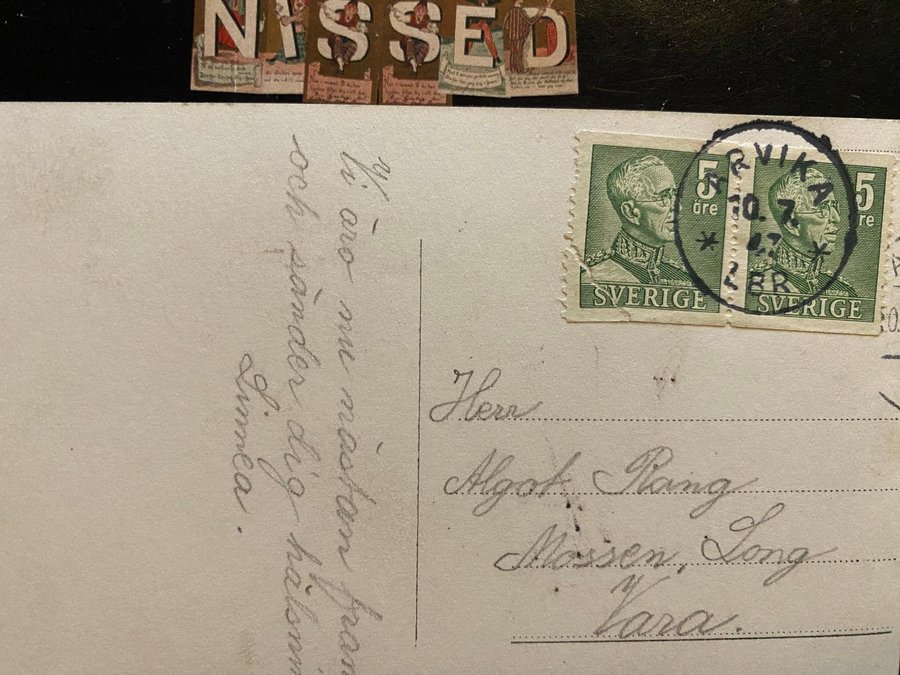 NISSED
5
öre
SVERIGE
5
öre
SVERIGE
ARVIKA
10. 7.
LBR
Vi äro nu nästan fram
och sänder dig hälsni
Linnea.
Herr
Algot Rang
Mossen, Long
Vara.